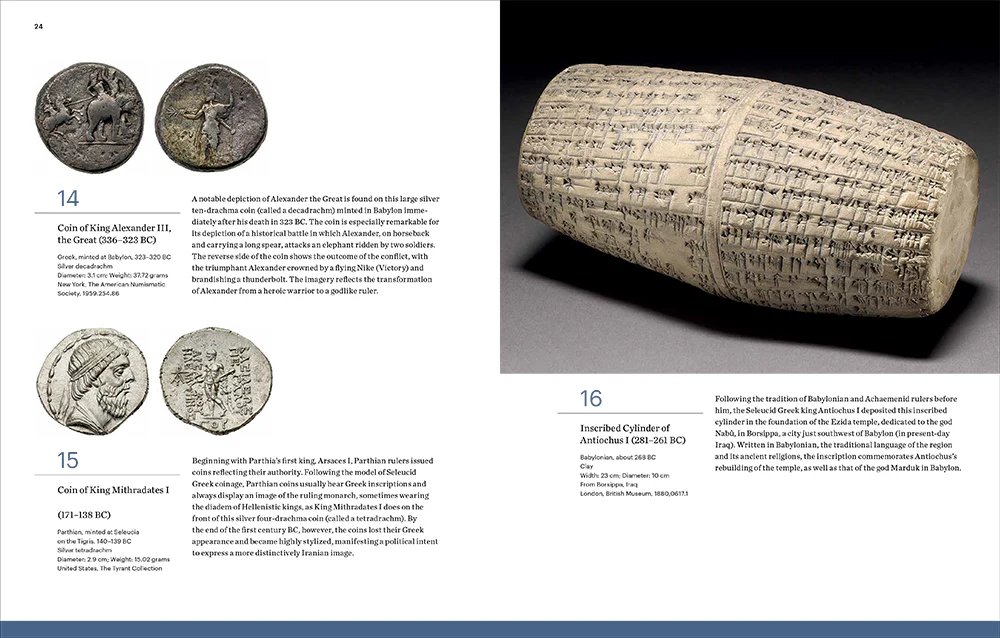 24
14
Coin of King Alexander III,
the Great (336–323 BC)
Greek, minted at Babylon, 323–320 BC
Silver decadrachm
Diameter: 3.1 cm; Weight: 37.72 grams
New York, The American Numismatic
Society, 1959.254.86
A notable depiction of Alexander the Great is found on this large silver
ten-drachma coin (called a decadrachm) minted in Babylon imme-
diately after his death in 323 BC. The coin is especially remarkable for
its depiction of a historical battle in which Alexander, on horseback
and carrying a long spear, attacks an elephant ridden by two soldiers.
The reverse side of the coin shows the outcome of the conflict, with
the triumphant Alexander crowned by a flying Nike (Victory) and
brandishing a thunderbolt. The imagery reflects the transformation
of Alexander from a heroic warrior to a godlike ruler.
15
Coin of King Mithradates I
(171–138 BC)
Parthian, minted at Seleucia
on the Tigris, 140–139 BC
Silver tetradrachm
Diameter: 2.9 cm; Weight: 15.02 grams
United States, The Tyrant Collection
Beginning with Parthia's first king, Arsaces I, Parthian rulers issued
coins reflecting their authority. Following the model of Seleucid
Greek coinage, Parthian coins usually bear Greek inscriptions and
always display an image of the ruling monarch, sometimes wearing
the diadem of Hellenistic kings, as King Mithradates I does on the
front of this silver four-drachma coin (called a tetradrachm). By
the end of the first century BC, however, the coins lost their Greek
appearance and became highly stylized, manifesting a political intent
to express a more distinctively Iranian image.
16
Inscribed Cylinder of
Antiochus I (281–261 BC)
Babylonian, about 268 BC
Clay
Width: 23 cm; Diameter: 10 cm
From Borsippa, Iraq
London, British Museum, 1880,0617.1
Following the tradition of Babylonian and Achaemenid rulers before
him, the Seleucid Greek king Antiochus I deposited this inscribed
cylinder in the foundation of the Ezida temple, dedicated to the god
Nabû, in Borsippa, a city just southwest of Babylon (in present-day
Iraq). Written in Babylonian, the traditional language of the region
and its ancient religions, the inscription commemorates Antiochus's
rebuilding of the temple, as well as that of the god Marduk in Babylon.